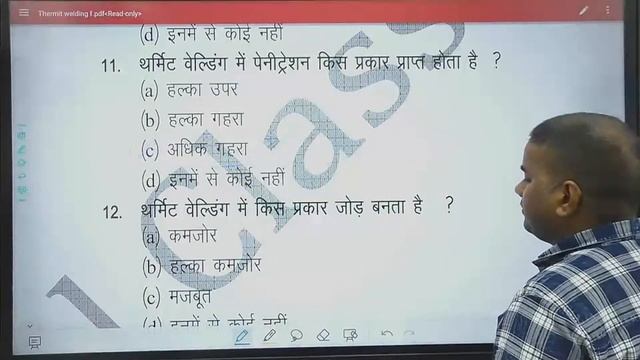 Thermit welding f.pdf<Read-only>
(d) इनमें से कोई नहीं
11. थर्मिट वेल्डिंग में पेनीट्रेशन किस प्रकार प्राप्त होता है ?
(a) हल्का उपर
(b) हल्का गहरा
(c) अधिक गहरा
(d) इनमें से कोई नहीं
12. थर्मिट वेल्डिंग में किस प्रकार जोड़ बनता है ?
(a) कमजोर
(b) हल्का कमजोर
(c) मजबूत
(d) इनमें से कोई नहीं
Class